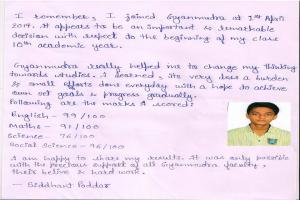 I remember, I joined Gyanmudra at 1st April
2014. It appears to be an important is remarkable
decision with respect to the beginning of my class
10th academic year.
Gyanmudra really helped me to change my thinking
towards studies. I learned, its very less a burden
is small efforts done everyday with a hope to achieve
own set goals is progress gradually.
Following are the marks I scored:
English - 99/100
Maths - 91/100
Science - 96/100
Social Science - 96/100
I am happy to share my results. It was only possible
with the precious support of all Gyanmudra faculty,
their belive is hard work.
- Siddhant Poddar